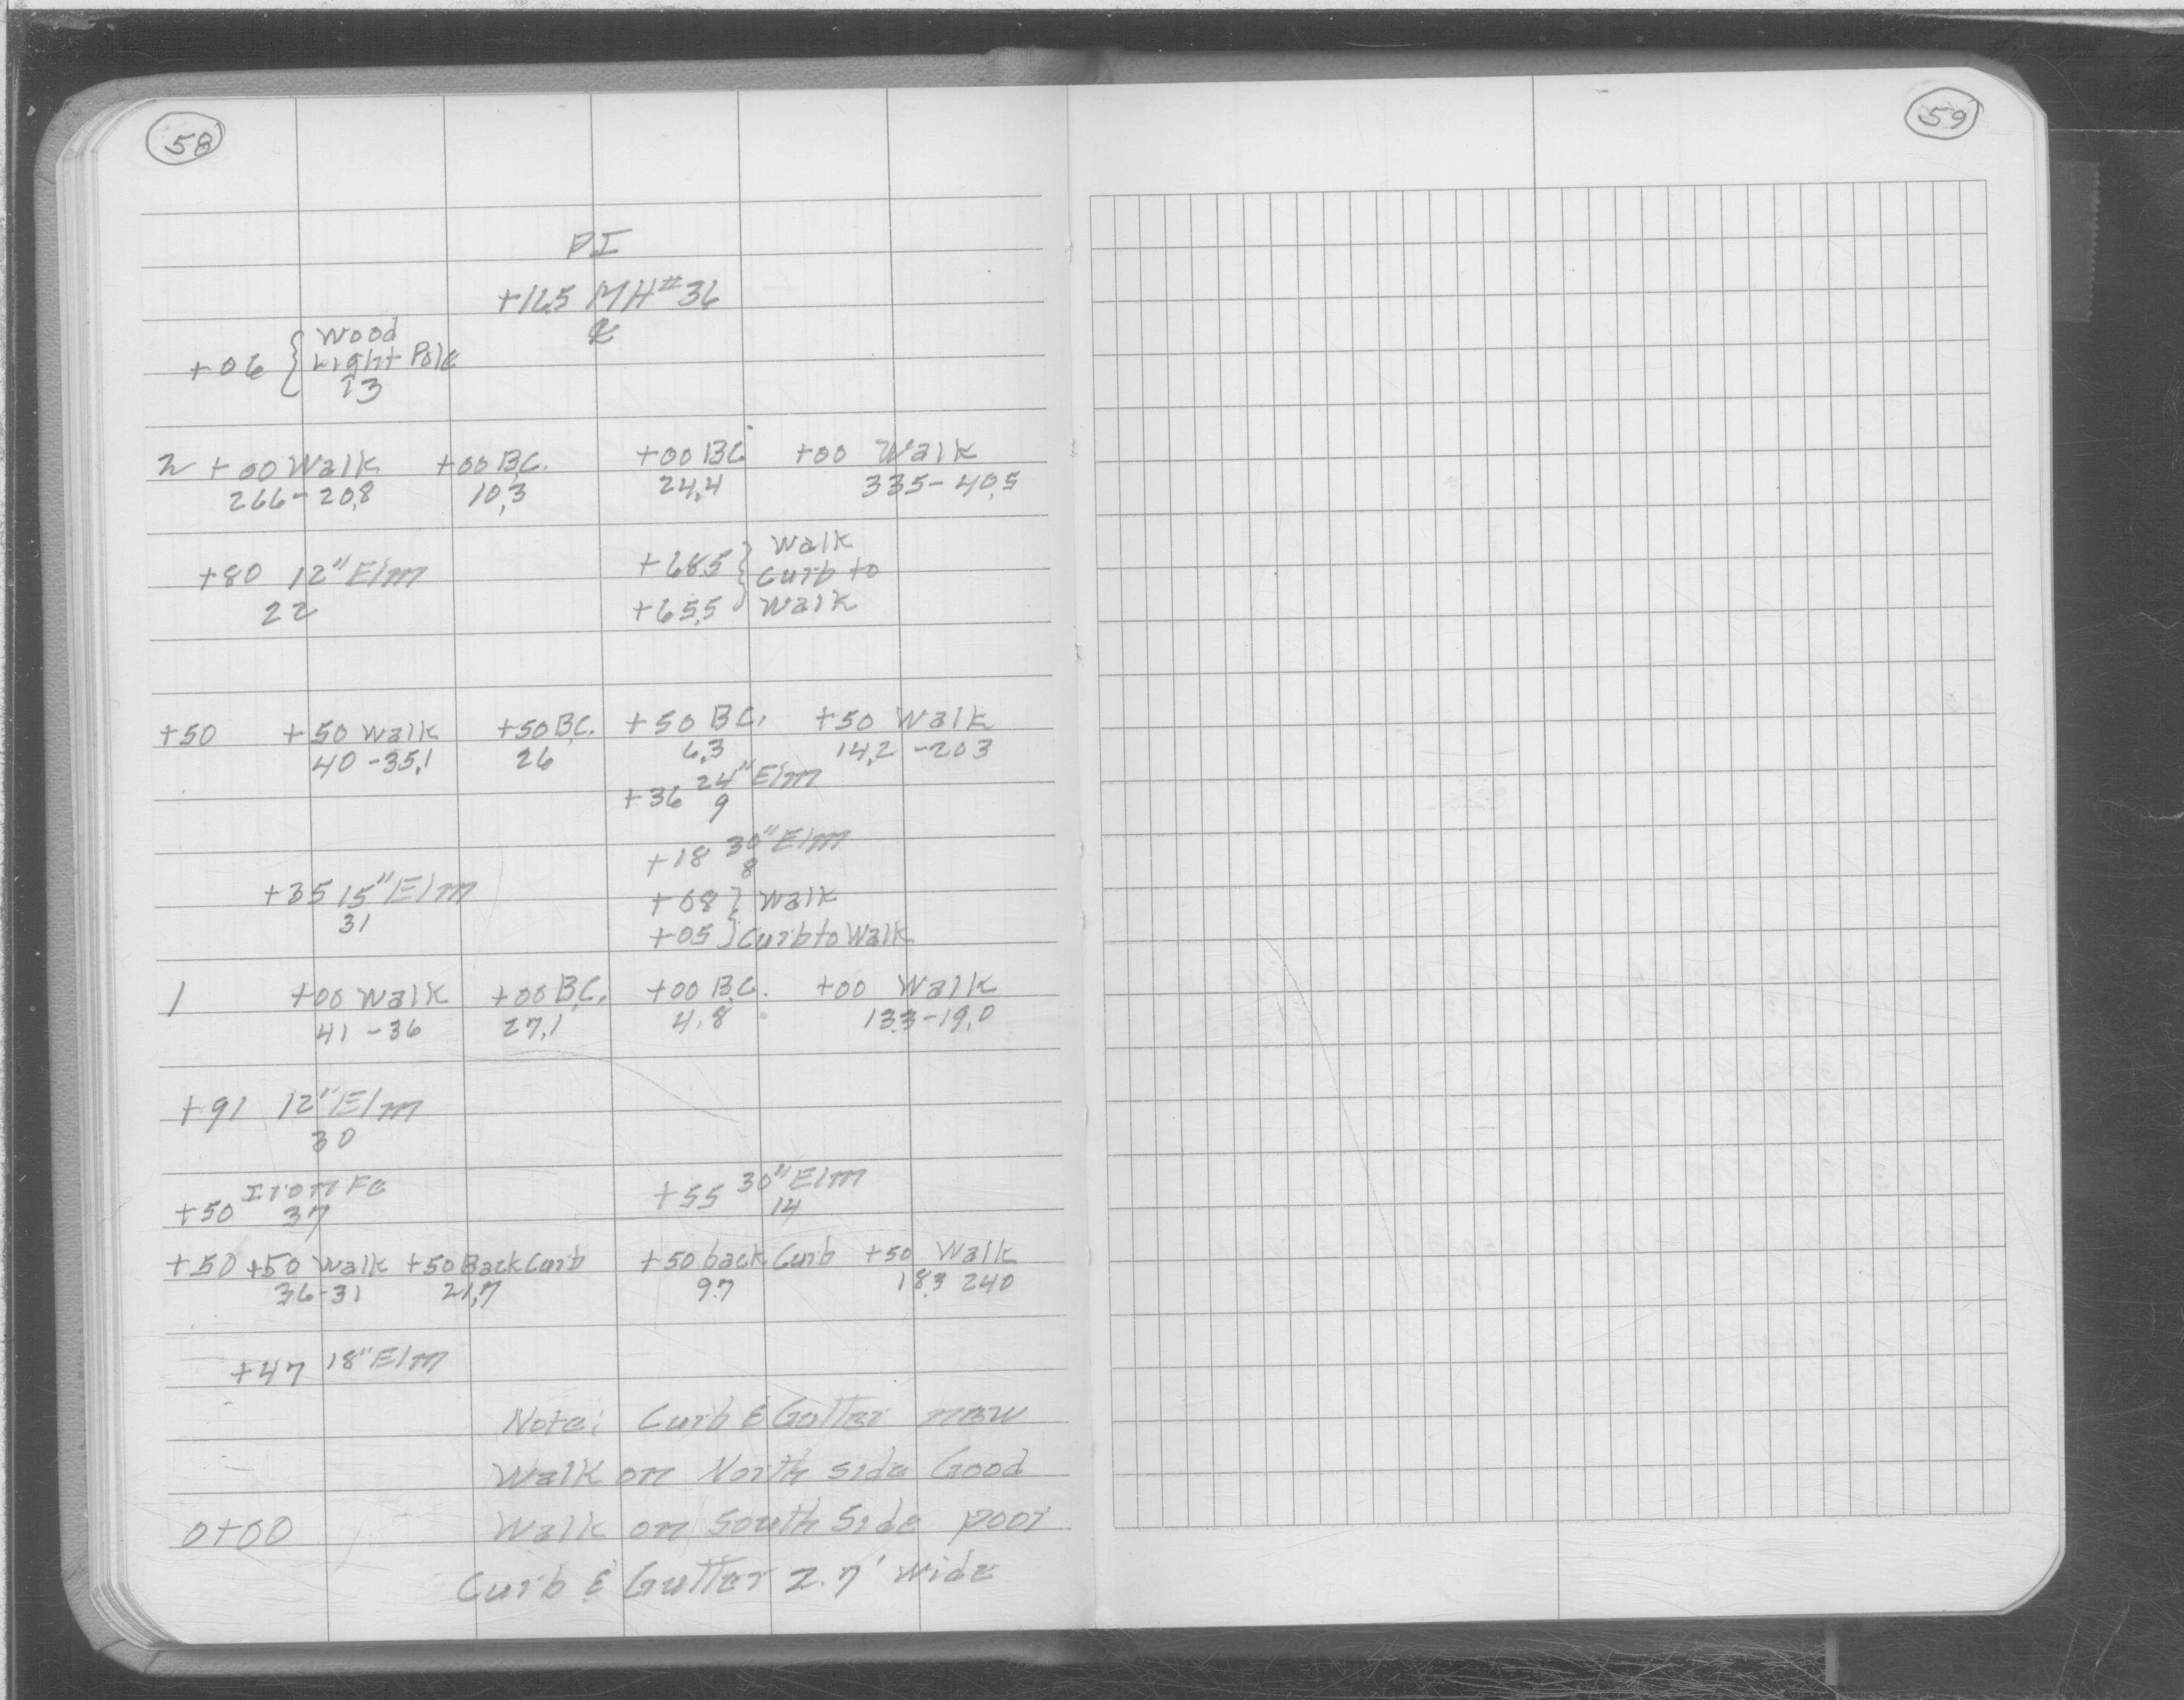 58
59
PI
+16.5 MH#36
℄
+06 { Wood
Light Pole
13
2 +00 Walk +00 B.C. +00 BC +00 Walk
26.6-20.8 10.3 24.4 33.5-40.5
+80 12" Elm +68.5 } Walk
Curb to
22 +65.5 Walk
+50 +50 Walk +50 B.C. +50 B.C. +50 Walk
40-35.1 26 6.3 14.2-20.3
+36 24" Elm
9
+18 30" Elm
8
+35 15" Elm +08 } Walk
31 +05 } Curb to Walk
1 +00 Walk +00 B.C. +00 B.C. +00 Walk
41-36 27.1 4.8 13.3-19.0
+91 12" Elm
30
+50 Iron Fe +55 30" Elm
37 14
+50 +50 Walk +50 Back Curb +50 back Curb +50 Walk
36-31 21.7 9.7 18.3 24.0
+47 18" Elm
Note: Curb & Gutter new
Walk on North side Good
0+00 Walk on South Side poor
Curb & Gutter 2.7' wide